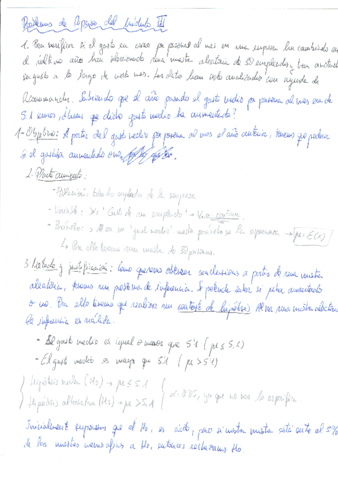 Problemas de Apoyo del Módulo III
1. Para verificar si el gasto en cenas por personal al mes en una empresa ha cambiado en
el último año han observado una muestra aleatoria de 30 empleados y han anotado
su gasto a lo largo de este mes. Los datos han sido analizados con ayuda de
Rcommander. Sabiendo que el año pasado el gasto medio por persona al mes era de
5.1 euros, ¿Crees que dicho gasto medio ha aumentado?
1- Objetivo: A partir del gasto medio por persona al mes el año anterior, tenemos que
si el gasto ha aumentado o no.
2. Planteamiento:
- Población: todos los empleados de la empresa
- Variable: X = "Gasto de un empleado" → Var. continua
- Parámetro: μ → μ = E(x)
↳ Para ello tenemos una muestra de 30 personas.
3. y justificación: Como queremos obtener conclusiones a partir de una muestra
aleatoria, tenemos un problema de inferencia. Se pretende saber si μ ha aumentado
o no. Para ello tenemos que realizar un contraste de hipótesis. Al ser una muestra aleatoria
la inferencia es válida.
- El gasto medio es igual o menor que 5.1 (μ ≤ 5.1)
- El gasto medio es mayor que 5.1 (μ > 5.1)
Hipótesis nula (H₀) → μ ≤ 5.1
Hipótesis alternativa (H₁) → μ > 5.1
α: 0.05, ya que no nos lo especifica
Inicialmente suponemos que el H₀ es cierto, pero si nuestra muestra está entre el 5%
de las muestras menos afines a H₀, entonces rechazamos H₀.